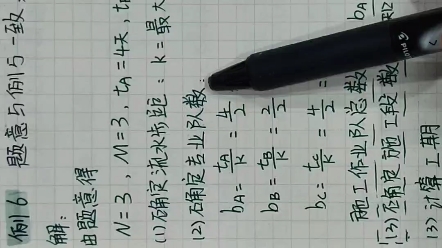 例6 题意与例5一致:
解:
由题意得
N=3, M=3, tA=4天, t
(1)确定流水步距: K=最大
(2)确定专业队数.
bA=tA/K=4/2
bB=tB/K=2/2
bC=tC/K=4/2=
施工作业队总数 bA
(3)确定施工段数
(3)计算工期